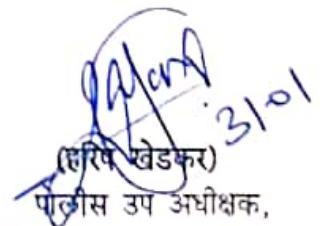 31-01
(हरिष खेडकर)
पोलीस उप अधीक्षक,